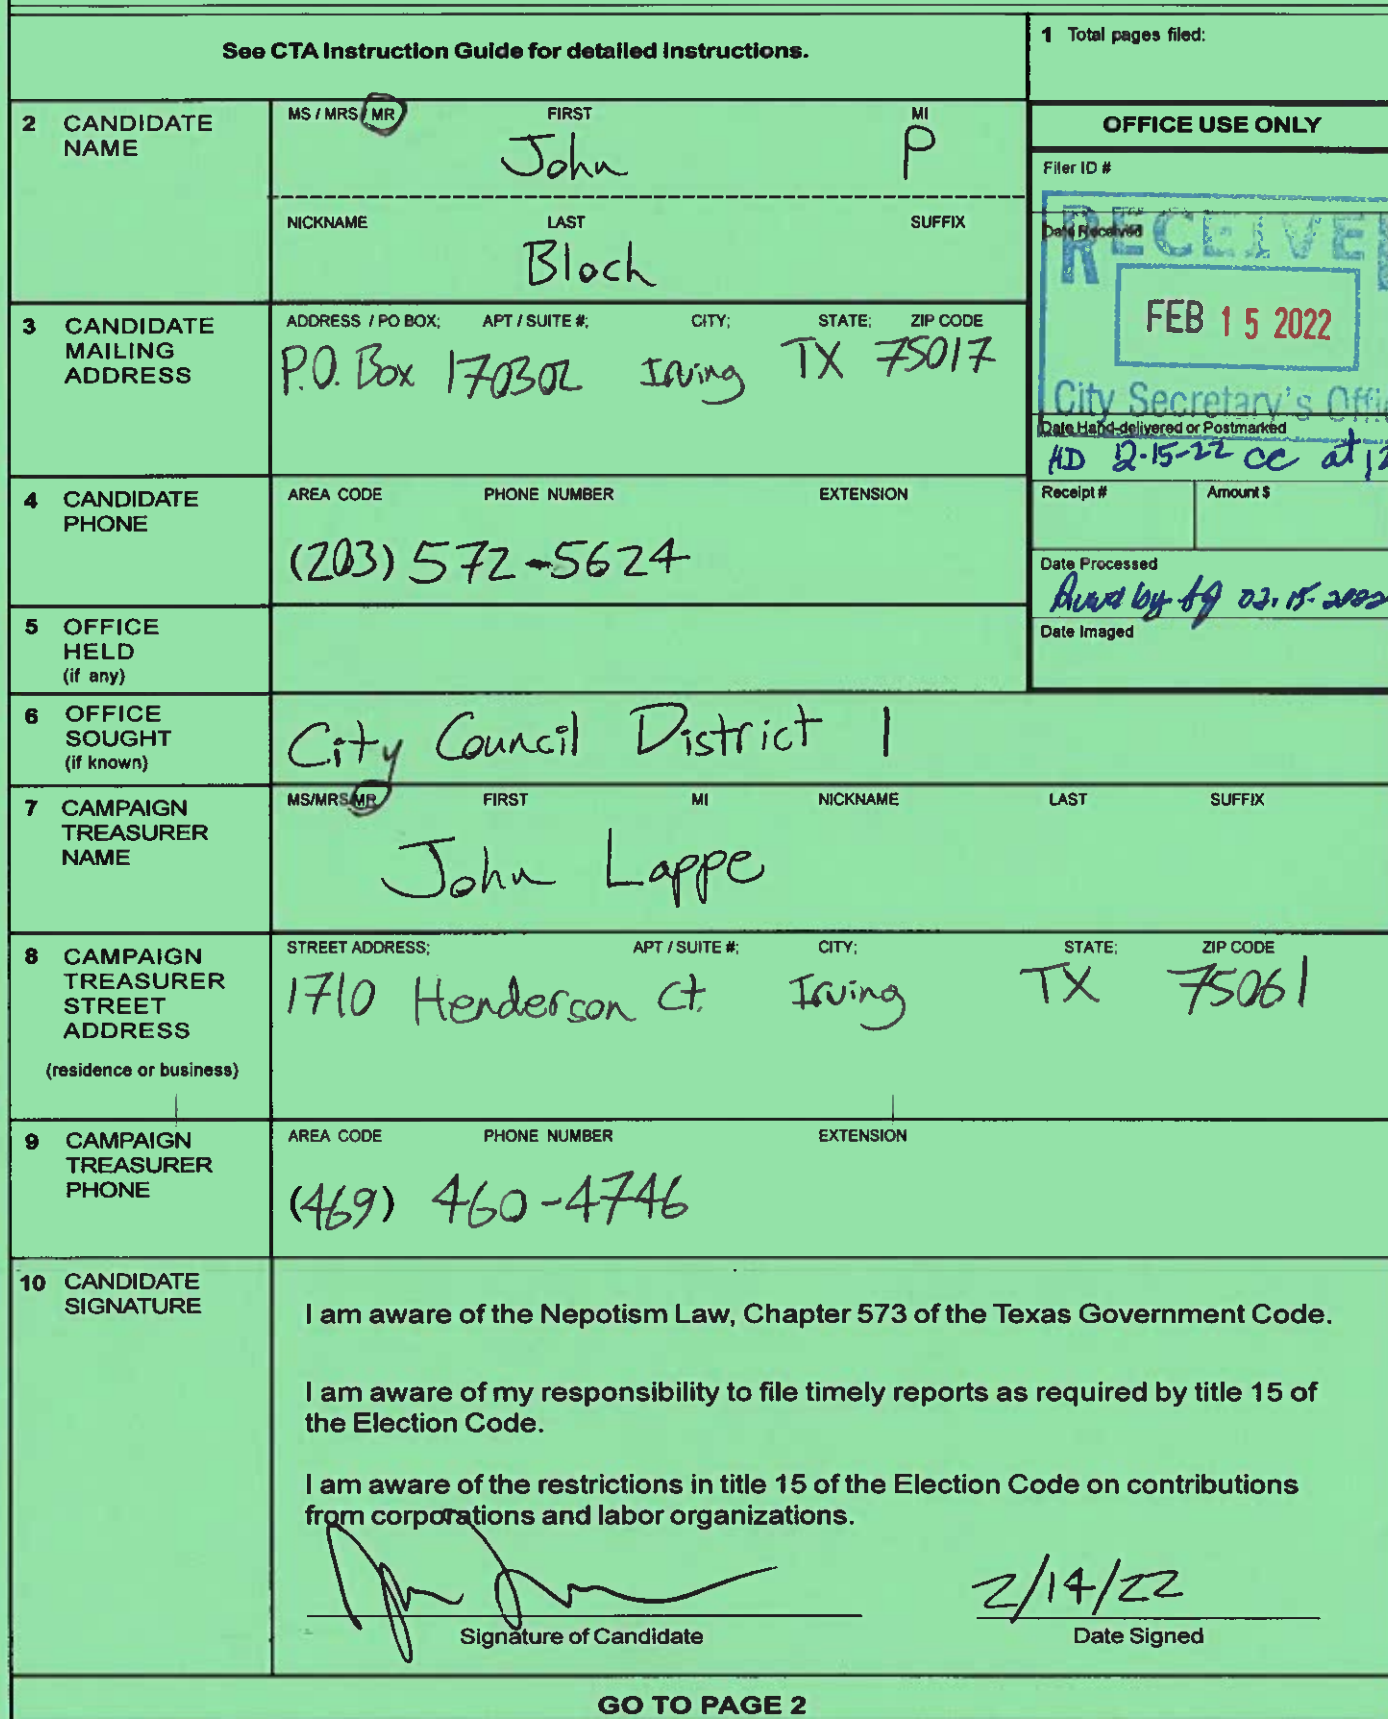 See CTA Instruction Guide for detailed instructions.
1 Total pages filed:
2 CANDIDATE NAME
MS / MRS / MR FIRST MI
John P
NICKNAME LAST SUFFIX
Bloch
OFFICE USE ONLY
Filer ID #
Date Received
RECEIVE
FEB 15 2022
City Secretary's Offi
3 CANDIDATE MAILING ADDRESS
ADDRESS / PO BOX; APT / SUITE #; CITY; STATE; ZIP CODE
P.O. Box 170302 Irving TX 75017
Date Hand-delivered or Postmarked
HD 2-15-22 cc at 12
4 CANDIDATE PHONE
AREA CODE PHONE NUMBER EXTENSION
(203) 572-5624
Receipt # Amount $
Date Processed
by 02-15-2022
Date Imaged
5 OFFICE HELD (if any)
6 OFFICE SOUGHT (if known)
City Council District 1
7 CAMPAIGN TREASURER NAME
MS/MRS/MR FIRST MI NICKNAME LAST SUFFIX
John Lappe
8 CAMPAIGN TREASURER STREET ADDRESS
(residence or business)
STREET ADDRESS; APT / SUITE #; CITY; STATE; ZIP CODE
1710 Henderson Ct. Irving TX 75061
9 CAMPAIGN TREASURER PHONE
AREA CODE PHONE NUMBER EXTENSION
(469) 460-4746
10 CANDIDATE SIGNATURE
I am aware of the Nepotism Law, Chapter 573 of the Texas Government Code.
I am aware of my responsibility to file timely reports as required by title 15 of
the Election Code.
I am aware of the restrictions in title 15 of the Election Code on contributions
from corporations and labor organizations.
2/14/22
Signature of Candidate Date Signed
GO TO PAGE 2